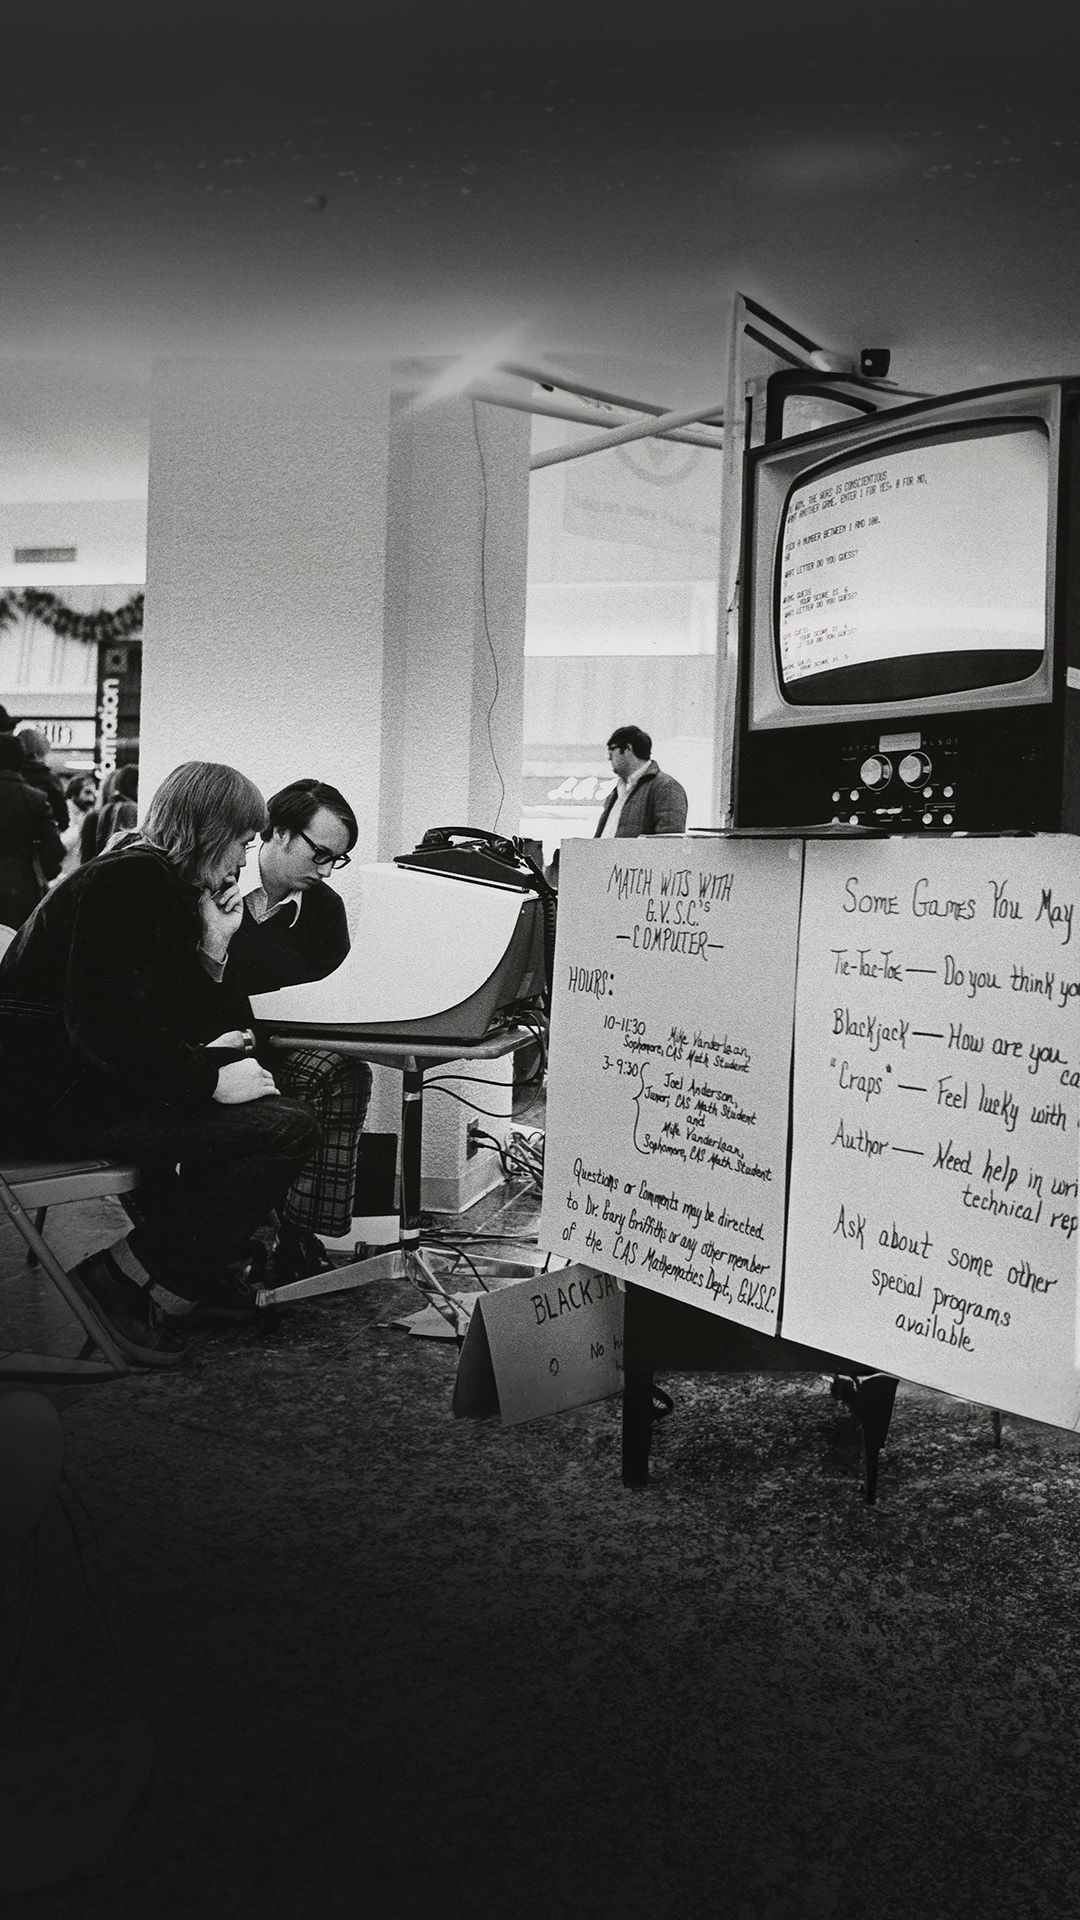 YOU WON. THE WORD IS CONSCIENTIOUS
WANT ANOTHER GAME, ENTER 1 FOR YES, 0 FOR NO,
PICK A NUMBER BETWEEN 1 AND 100.
WHAT LETTER DO YOU GUESS?
WRONG GUESS
YOUR SCORE IS 6
WHAT LETTER DO YOU GUESS?
YOUR SCORE IS
WRONG GUESS
YOUR SCORE IS 5
ormation
MATCH WITS WITH
G.V.S.C.'s
—COMPUTER—
HOURS:
10-11:30 Mike Vanderlaan,
Sophomore, CAS Math Student
3-9:30 Joel Anderson,
Junior, CAS Math Student
and
Mike Vanderlaan,
Sophomore, CAS Math Student
Questions or Comments may be directed
to Dr. Gary Griffiths or any other member
of the CAS Mathematics Dept., G.V.S.C.
Some Games You May
Tic-Tac-Toe — Do you think yo
Blackjack — How are you
ca
"Craps" — Feel lucky with
Author — Need help in wri
technical rep
Ask about some other
special programs
available
BLACKJA
No h